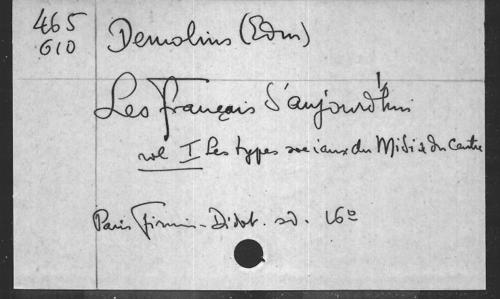 465
G10
Demolins (Edm)
Les Français d'aujourd'hui
vol I Les types sociaux du Midi & du Centre
Paris Firmin-Didot. sd. 16º